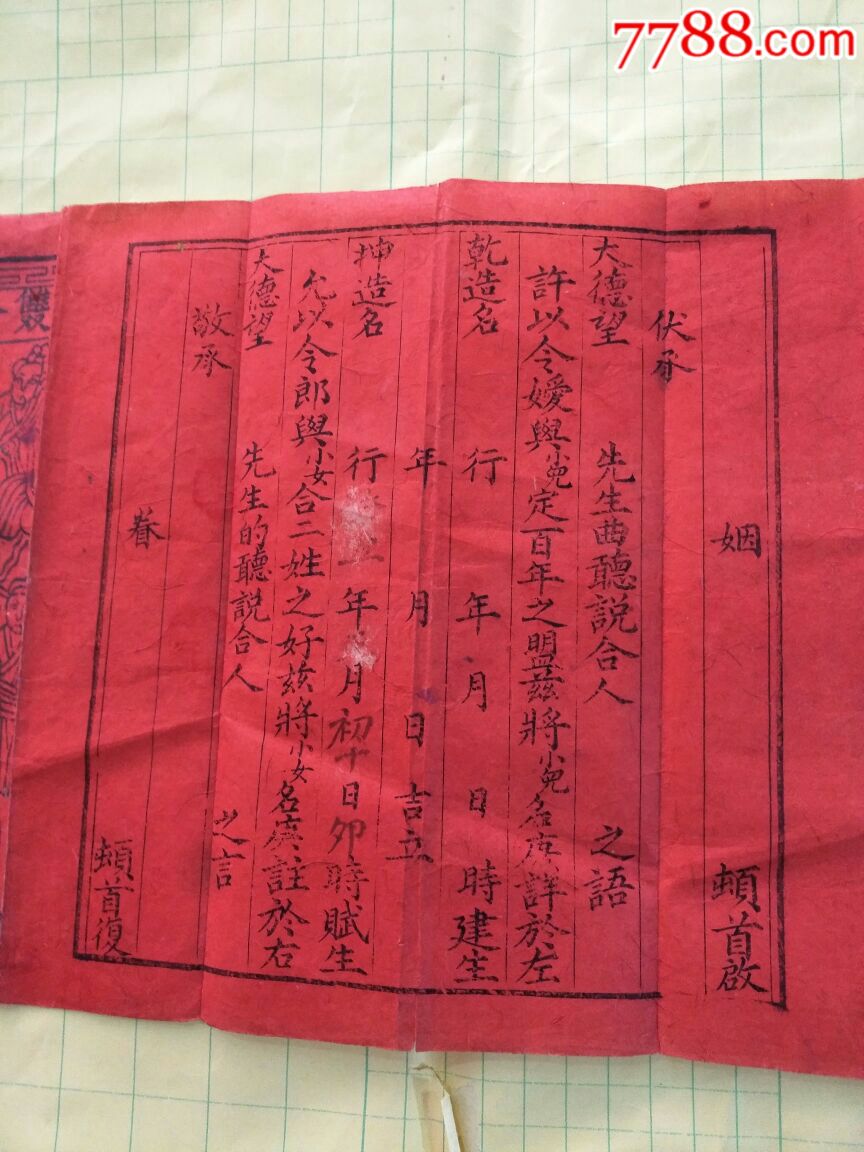 7788.com
姻 頓首啟
伏承
大德望 先生曲聽說合人 之語
許以令嬡與小兒定百年之盟茲將小兒名庚詳於左
乾造名 行 年 月 日 時建生
年 月 日吉立
坤造名 行 年 月初十日卯時賦生
允以令郎與小女合二姓之好茲將小女名庚註於右
大德望 先生的聽說合人 之言
敬承
眷 頓首復
雙